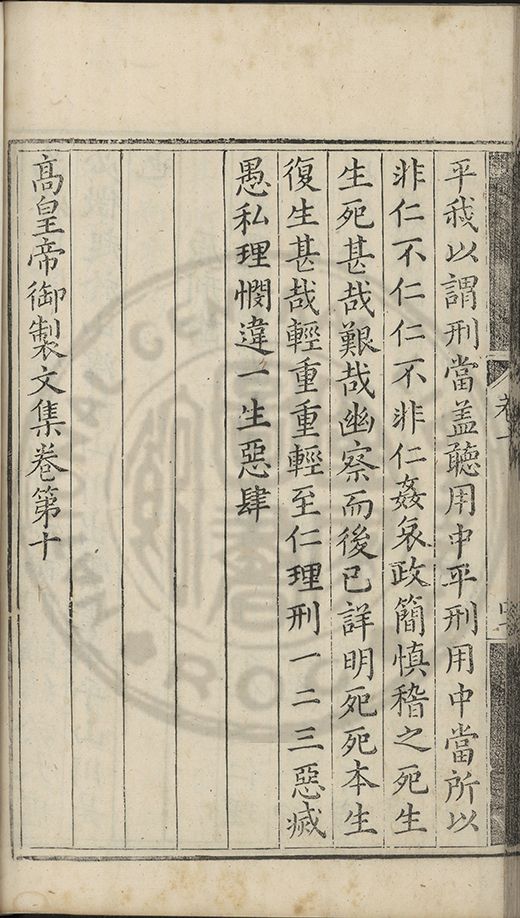 平哉以謂刑當盖聽用中平刑用中當所以
非仁不仁仁不非仁姦泉政簡慎稽之死生
生死甚哉艱哉幽察而後已詳明死死本生
復生甚哉輕重重輕至仁理刑一二三惡滅
愚私理憫違一生惡肆
高皇帝御製文集卷第十